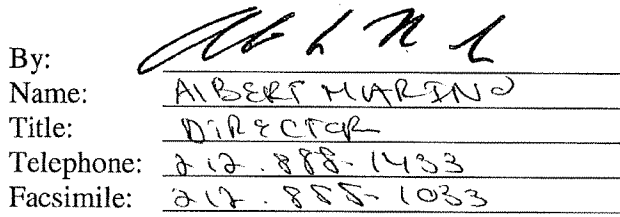 By:
Name: AlBERT MARINO
Title: DIRECTOR
Telephone: 212.888-1433
Facsimile: 212.855-1033